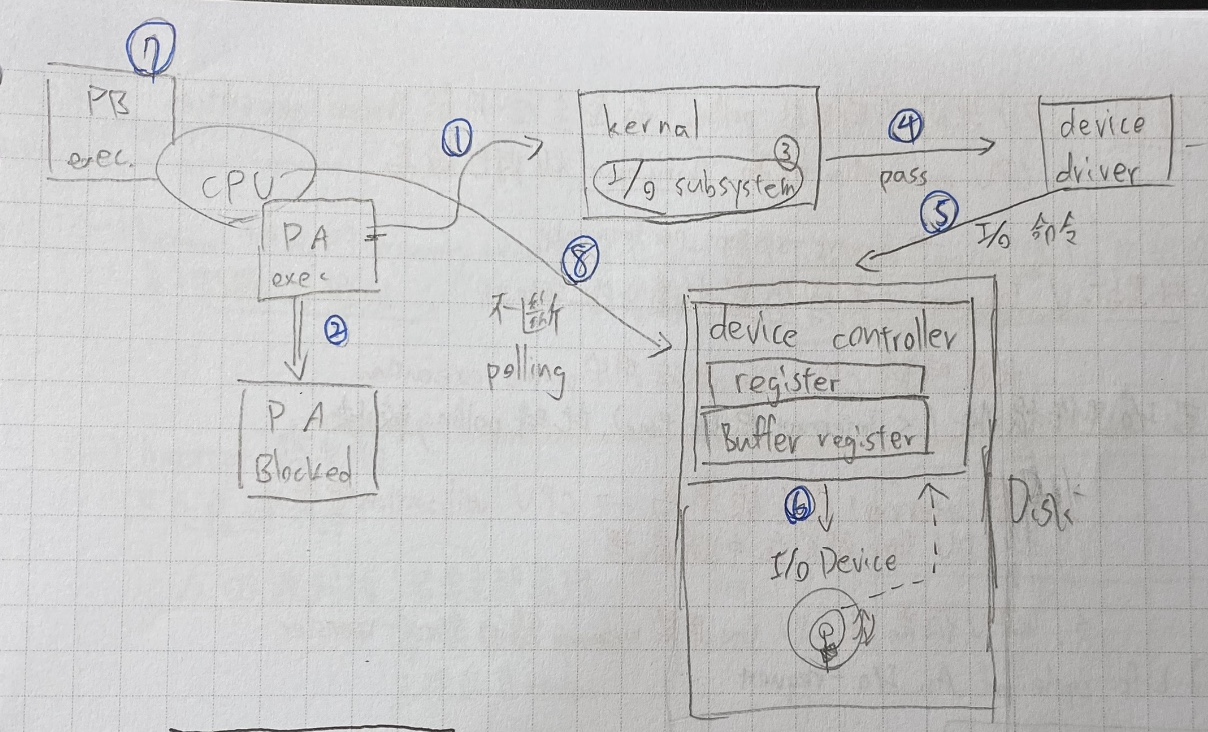 ⑦
PB
exec.
CPU
①
PA
exec
②
P A
Blocked
kernal
③
I/O subsystem
④
pass
device
driver
⑤
I/O 命令
⑧
不斷
polling
device controller
register
Buffer register
⑥
I/O Device
Disk